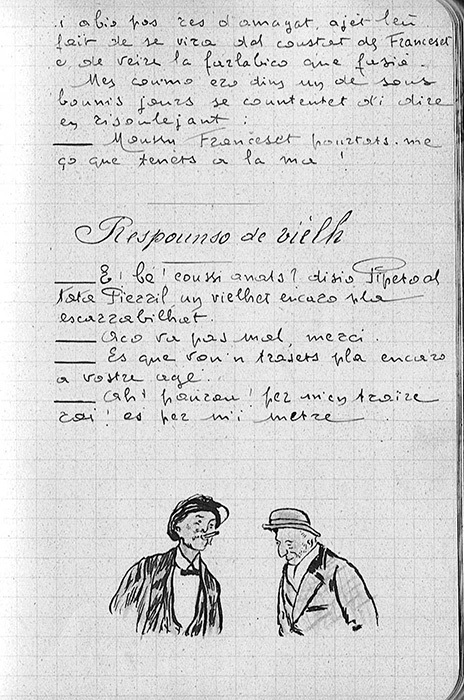 i abio pas res d'amagat, ajet leu
fait de se vira dal coustat de Franceset
e de veire la farlabico que fasio.
Mes coumo ero dins un de sous
bounis jours se countentet d'i dire
en risoulejant :
— Moussu Franceset pourtats-me
ço que tenèts a la ma !
Respounso de vièlh
— E ! be ! coussi anats ? disio Pipeto al
Tata Pierril un vielhet encaro pla
escarrabilhat.
— Aco va pas mal, merci.
— Es que vou'n trasets pla encaro
a vostre age.
— Ah ! paurou ! per m'en traire
rai ! es per m'i metre